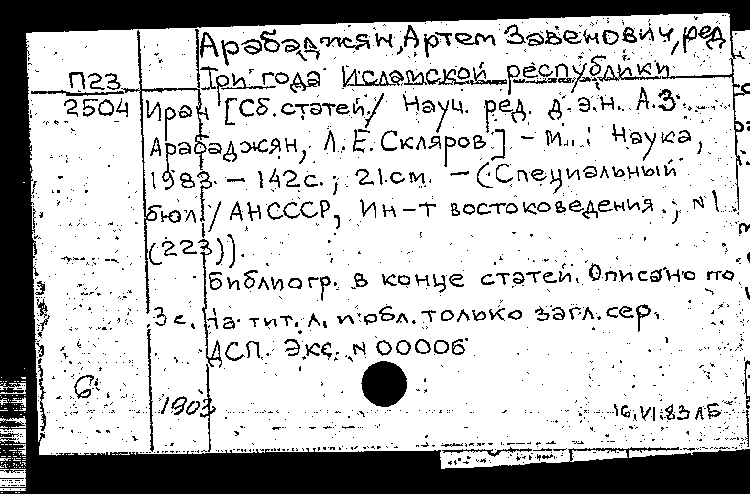 Арабаджян, Артем Завенович, ред
П23 Три года Исламской республики
2504 Иран [Сб. статей / Науч. ред. д.э.н. А.З.
Арабаджян, Л.Е. Скляров] - М.: Наука,
1983. - 142с.; 21.см. - (Специальный
бюл. / АНСССР, Ин-т востоковедения.; N1
(223)).
Библиогр. в конце статей. Описано по
3 с. На тит. л. и обл. только загл. сер.
ДСП. Экс. N 00006
6
1903
16.VI.83 ЛБ